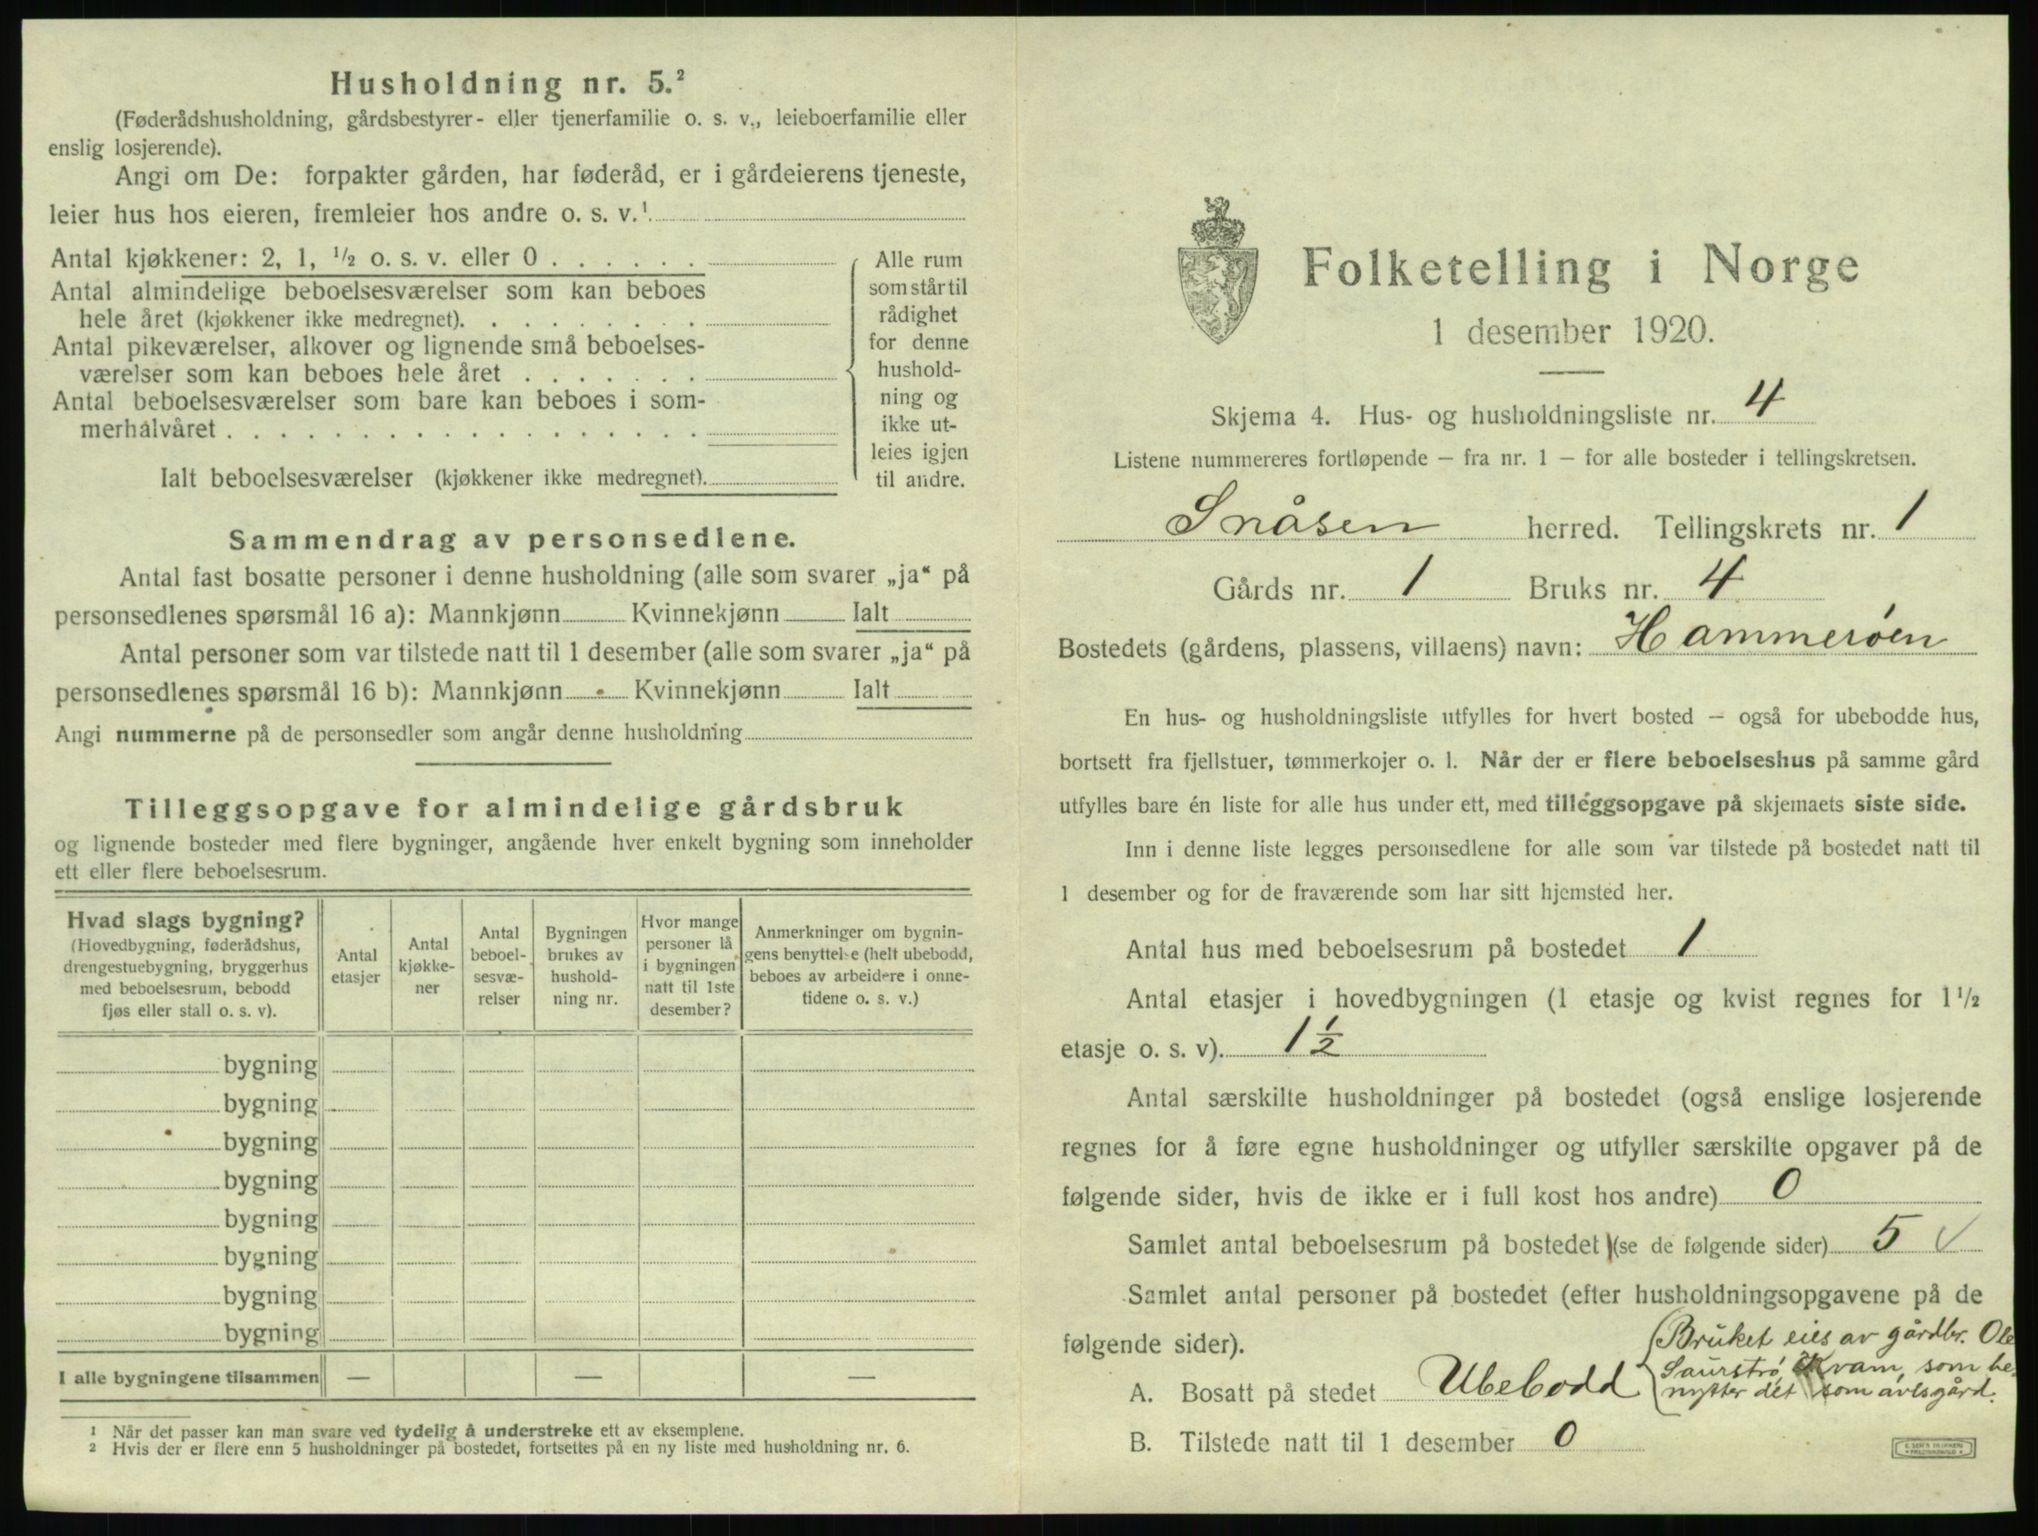 Husholdning nr. 5.²
(Føderådshusholdning, gårdsbestyrer- eller tjenerfamilie o. s. v., leieboerfamilie eller
enslig losjerende).
Angi om De: forpakter gården, har føderåd, er i gårdeierens tjeneste,
leier hus hos eieren, fremleier hos andre o. s. v.¹
Antal kjøkkener: 2, 1, ½ o. s. v. eller 0 . . . . . .
Antal almindelige beboelsesværelser som kan beboes
hele året (kjøkkener ikke medregnet). . . . . . . . .
Antal pikeværelser, alkover og lignende små beboelses-
værelser som kan beboes hele året . . . . . . .
Antal beboelsesværelser som bare kan beboes i som-
merhalvåret . . . . . . . . . . . . . . . . . .
Ialt beboelsesværelser (kjøkkener ikke medregnet).
Alle rum
som står til
rådighet
for denne
hushold-
ning og
ikke ut-
leies igjen
til andre.
Sammendrag av personsedlene.
Antal fast bosatte personer i denne husholdning (alle som svarer „ja“ på
personsedlenes spørsmål 16 a): Mannkjønn Kvinnekjønn Ialt
Antal personer som var tilstede natt til 1 desember (alle som svarer „ja“ på
personsedlenes spørsmål 16 b): Mannkjønn Kvinnekjønn Ialt
Angi nummerne på de personsedler som angår denne husholdning
Tilleggsopgave for almindelige gårdsbruk
og lignende bosteder med flere bygninger, angående hver enkelt bygning som inneholder
ett eller flere beboelsesrum.
Hvad slags bygning?
(Hovedbygning, føderådshus,
drengestuebygning, bryggerhus
med beboelsesrum, bebodd
fjøs eller stall o. s. v).
Antal
etasjer
Antal
kjøkke-
ner
Antal
beboel-
sesvæ-
relser
Bygningen
brukes av
hushold-
ning nr.
Hvor mange
personer lå
i bygningen
natt til 1ste
desember?
Anmerkninger om bygnin-
gens benyttelse (helt ubebodd,
beboes av arbeidere i onne-
tidene o. s. v.)
bygning
bygning
bygning
bygning
bygning
bygning
bygning
bygning
I alle bygningene tilsammen — — —
¹ Når det passer kan man svare ved tydelig å understreke ett av eksemplene.
² Hvis der er flere enn 5 husholdninger på bostedet, fortsettes på en ny liste med husholdning nr. 6.
Folketelling i Norge
1 desember 1920.
Skjema 4. Hus- og husholdningsliste nr. 4
Listene nummereres fortløpende — fra nr. 1 — for alle bosteder i tellingskretsen.
Snåsen herred. Tellingskrets nr. 1
Gårds nr. 1 Bruks nr. 4
Bostedets (gårdens, plassens, villaens) navn: Hammerøen
En hus- og husholdningsliste utfylles for hvert bosted — også for ubebodde hus,
bortsett fra fjellstuer, tømmerkojer o. l. Når der er flere beboelseshus på samme gård
utfylles bare én liste for alle hus under ett, med tilleggsopgave på skjemaets siste side.
Inn i denne liste legges personsedlene for alle som var tilstede på bostedet natt til
1 desember og for de fraværende som har sitt hjemsted her.
Antal hus med beboelsesrum på bostedet 1
Antal etasjer i hovedbygningen (1 etasje og kvist regnes for 1½
etasje o. s. v). 1½
Antal særskilte husholdninger på bostedet (også enslige losjerende
regnes for å føre egne husholdninger og utfyller særskilte opgaver på de
følgende sider, hvis de ikke er i full kost hos andre) 0
Samlet antal beboelsesrum på bostedet (se de følgende sider) 5 ✓
Samlet antal personer på bostedet (efter husholdningsopgavene på de
følgende sider).
A. Bosatt på stedet Ubebodd
(Bruket eies av gårdbr. Ole
Saurstrø, Kvam, som be-
nytter det som avlsgård.
B. Tilstede natt til 1 desember 0